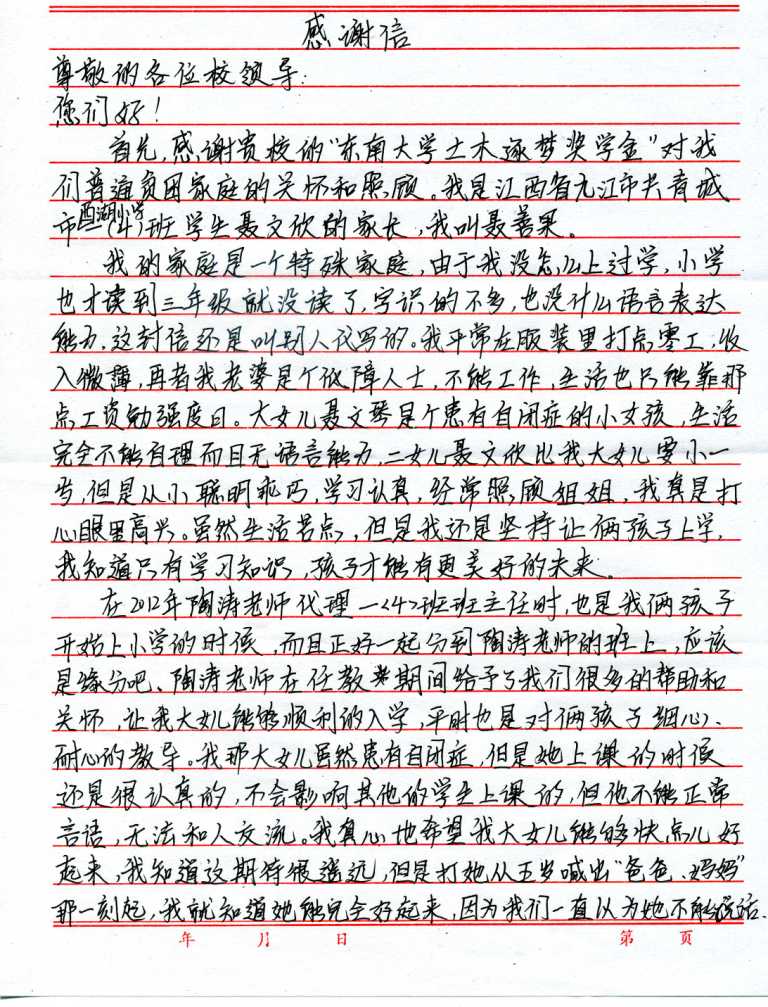 感谢信
尊敬的各位校领导:
您们好!
首先,感谢贵校的"东南大学土木逐梦奖学金"对我
们普通贫困家庭的关怀和照顾。我是江西省九江市共青城
市西湖小学一(4)班学生聂文欣的家长,我叫聂善果。
我的家庭是一个特殊家庭,由于我没怎么上过学,小学
也才读到三年级就没读了,字识的不多,也没什么语言表达
能力,这封信还是叫别人代写的。我平常在服装里打点零工,收
入微薄,再者我老婆是个低障人士,不能工作,生活也只能靠那
点工资勉强度日。大女儿聂文琴是个患有自闭症的小女孩,生活
完全不能自理而且无语言能力,二女儿聂文欣比我大女儿要小一
岁,但是从小聪明乖巧,学习认真,经常照顾姐姐,我真是打
心眼里高兴。虽然生活苦点,但是我还是坚持让俩孩子上学,
我知道只有学习知识,孩子才能有更美好的未来。
在2012年陶涛老师代理一<4>班班主任时,也是我俩孩子
开始上小学的时候,而且正好一起分到陶涛老师的班上,应该
是缘分吧、陶涛老师在任教期间给予了我们很多的帮助和
关怀,让我大女儿能够顺利的入学,平时也是对俩孩子细心、
耐心的教导。我那大女儿虽然患有自闭症,但是她上课的时候
还是很认真的,不会影响其他的学生上课的,但他不能正常
言语,无法和人交流。我真心地希望我大女儿能够快点儿好
起来,我知道这期待很遥远,但是打她从五岁喊出"爸爸、妈妈"
那一刻起,我就知道她能完全好起来,因为我们一直以为她不能说话.
年 月 日 第 页